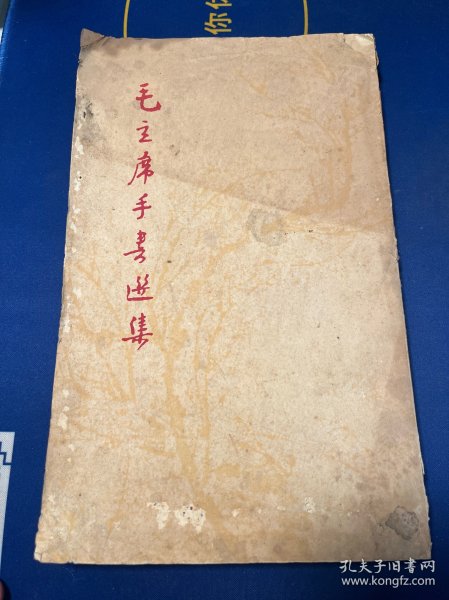 你
毛主席手书選集
孔夫子旧书网
www.kongfz.com